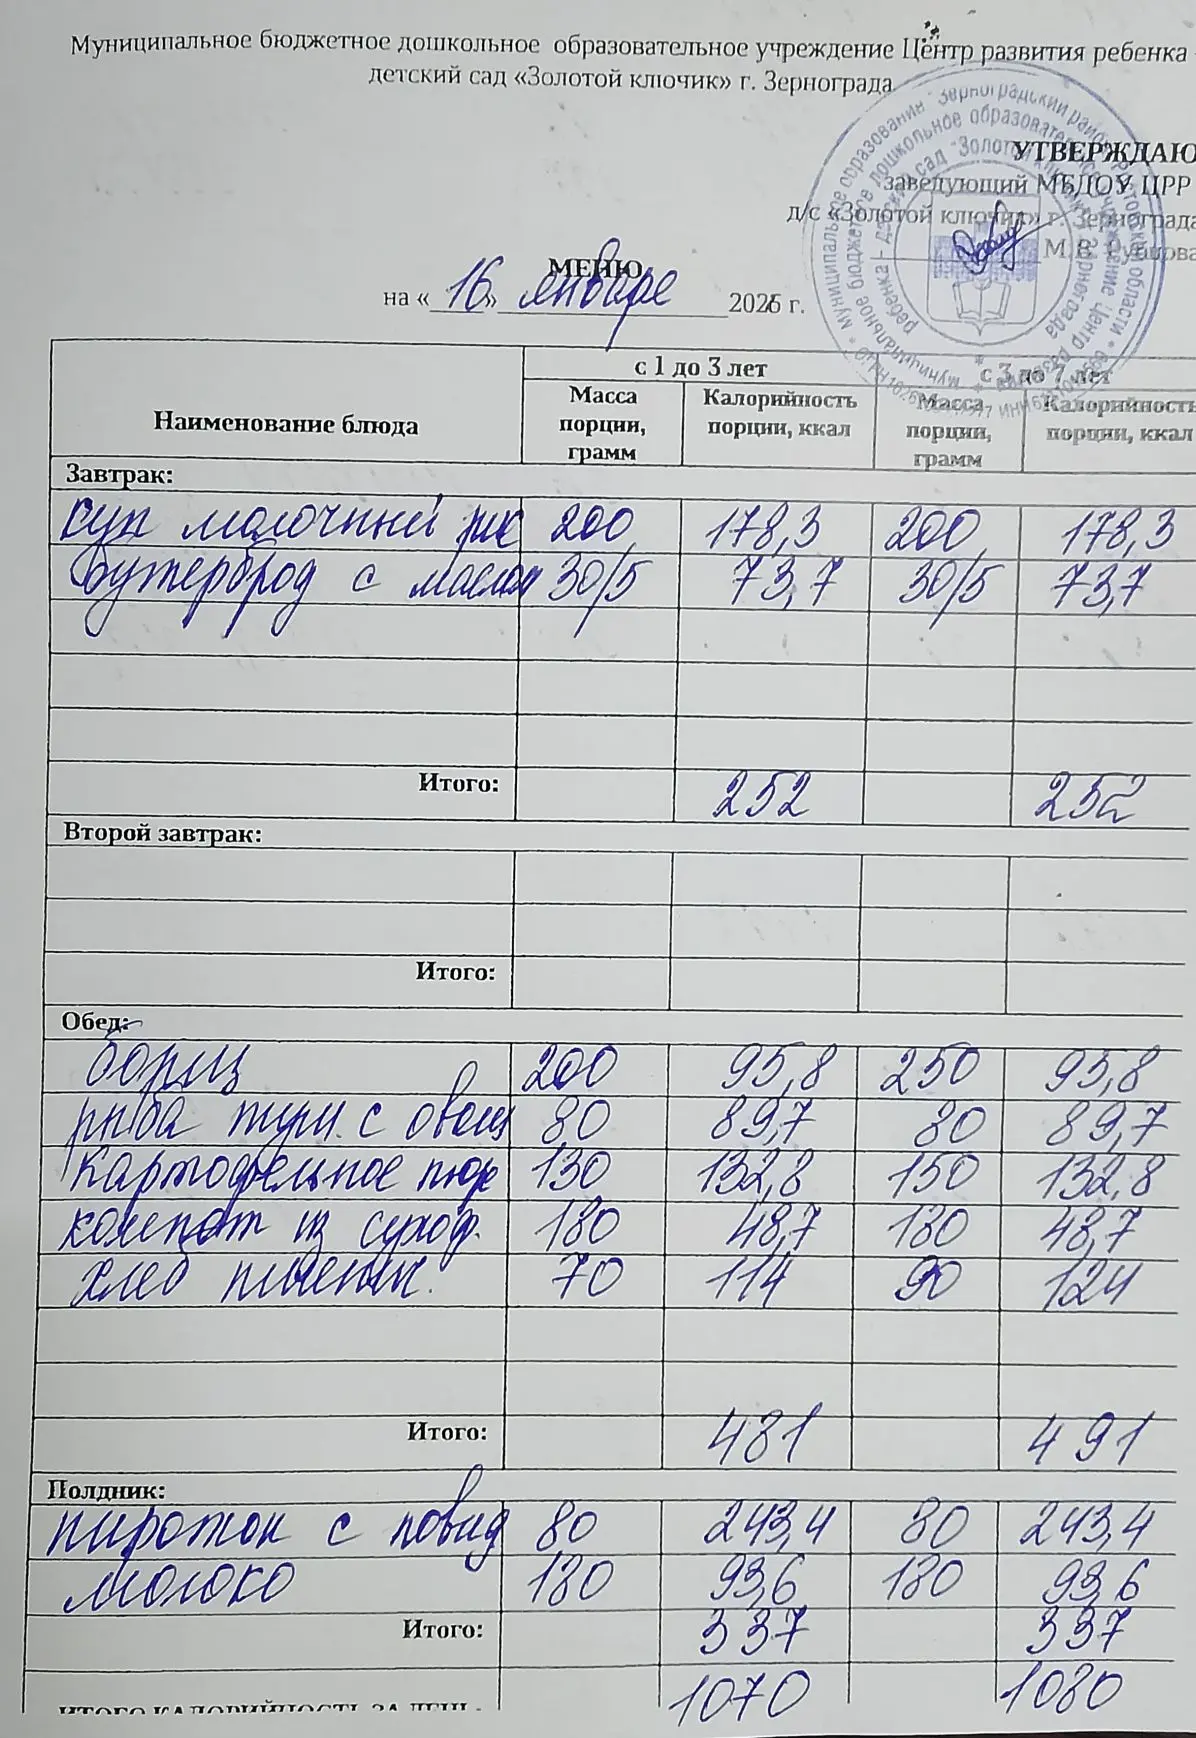 Муниципальное бюджетное дошкольное образовательное учреждение Центр развития ребенка -
детский сад «Золотой ключик» г. Зернограда
УТВЕРЖДАЮ
заведующий МБДОУ ЦРР
д/с «Золотой ключик» г. Зернограда
М.В.
МЕНЮ
на « 16 » января 2026 г.
Наименование блюда с 1 до 3 лет с 3 до 7 лет
Масса порции, грамм Калорийность порции, ккал Масса порции, грамм Калорийность порции, ккал
Завтрак:
суп молочный рис 200 178,3 200 178,3
бутерброд с маслом 30/5 73,7 30/5 73,7
Итого: 252 252
Второй завтрак:
Итого:
Обед:
борщ 200 95,8 250 95,8
рыба туш. с овощ 80 89,7 80 89,7
картофельное пюре 130 132,8 150 132,8
компот из сухоф. 180 48,7 180 48,7
хлеб пшенич. 70 114 90 124
Итого: 481 491
Полдник:
пирожок с повид 80 243,4 80 243,4
молоко 180 93,6 180 93,6
Итого: 337 337
ИТОГО КАЛОРИЙНОСТЬ ЗА ДЕНЬ: 1070 1080